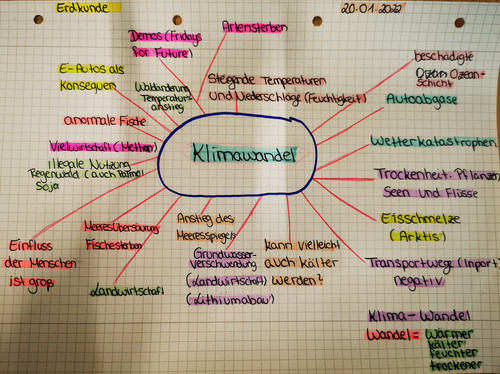 Erdkunde
20.01.2022
Artensterben
Demos (Fridays
for Future)
E-Autos als
Konsequenz
Waldänderung
Temperatur-
anstieg
Steigende Temperaturen
und Niederschläge (Feuchtigkeit)
beschädigte
Ozon Ozean-
schicht
Autoabgase
anormale Fische
Vielwirtschaft (Methan)
Illegale Nutzung
Regenwald (auch Palmöl
Soja
Klimawandel
Wetterkatastrophen
Trockenheit. Pflanzen
Seen und Flüsse
Eisschmelze
(Arktis)
Transportwege (Inport)
negativ
Einfluss
der Menschen
ist groß
Meeresübersäurung
Fischesterben
Landwirtschaft
Anstieg des
Meeresspiegels
Grundwasser-
verschwendung
(Landwirtschaft)
(Lithiumabau)
kann vielleicht
auch kälter
werden?
Klima-Wandel
Wandel = Wärmer
kälter
feuchter
trockener